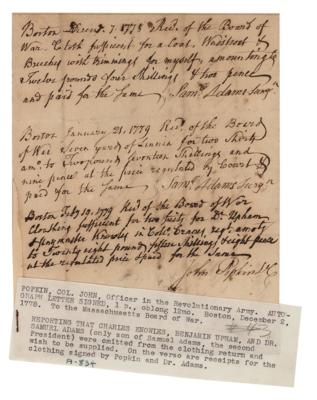 Boston Decemr. 7. 1778 Recd. of the Board of
War Cloth sufficient for a Coat, Waistcoat &
Breeches with Trimmings for myself, amounting to
Twelve pounds four Shillings & two pence
and paid for the Same Saml. Adams Surgn.
Boston January 21. 1779 Recd. of the Board
of War Seven yards of Linnin for two Shirts
amo. to Two pounds Shillings and
nine pence at the price regulated by Court &
paid for the Same Saml. Adams Surgn.
Boston Feby 19. 1779 Recd of the Board of War
Cloathing sufficient for two suits for Dr. Upham
& Paymaster Knowles in Colo. regt. amoty
to Twenty eight pound fifteen Shillings & eight pence
at the regulated price & paid for the Same
John
POPKIN, COL. JOHN, Officer in the Revolutionary Army. AUTO-
GRAPH LETTER SIGNED, 1 p., oblong 12mo. Boston, December 2,
1778. To the Massachusetts Board of War.
REPORTING THAT CHARLES KNOWLES, BENJAMIN UPHAM, AND DR.
SAMUEL ADAMS (only son of Samuel Adams, the second
President) were omitted from the clothing return and
wish to be supplied. On the verso are receipts for the
clothing signed by Popkin and Dr. Adams.